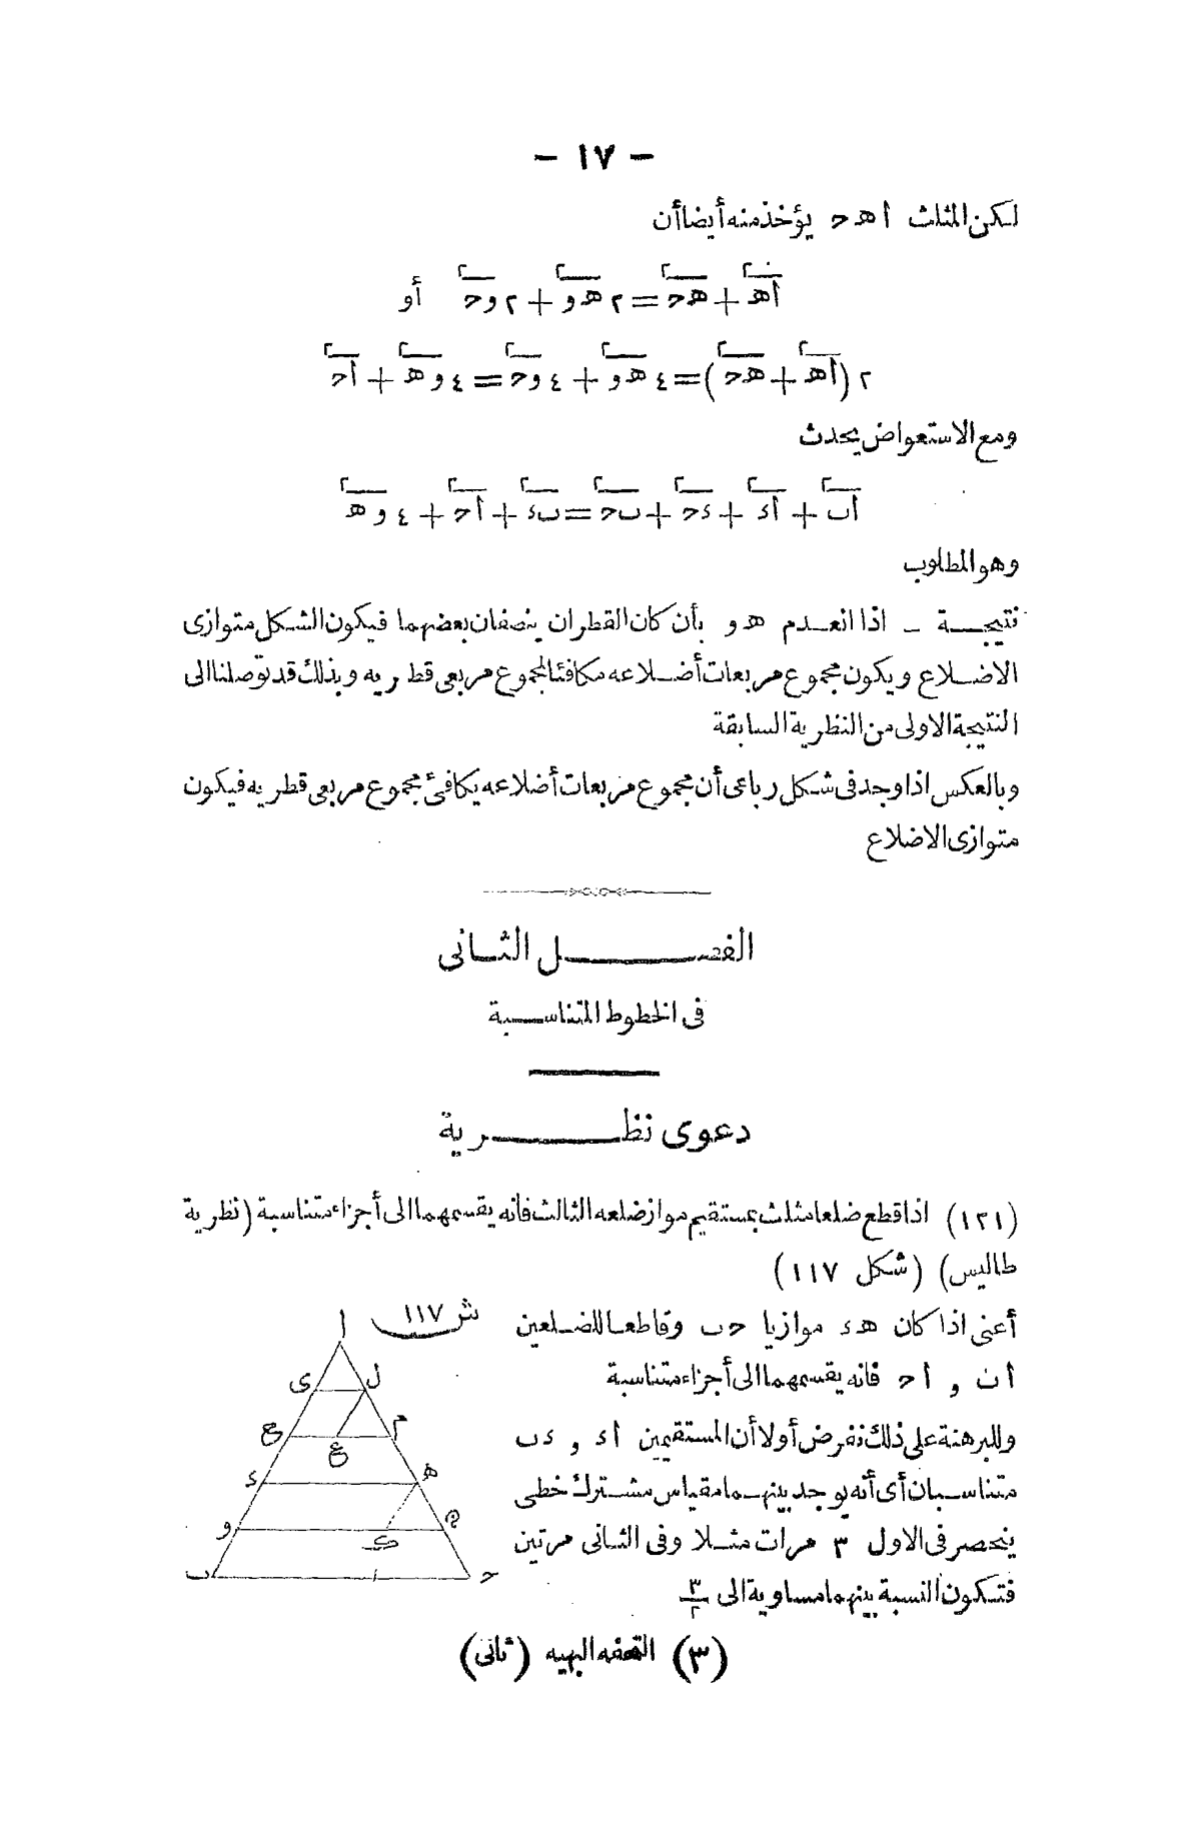 — ١٧ —
لكن المثلث ا ه ح يؤخذ منه أيضا أن
اه٢ + هح٢ = ٢ هو٢ + ٢ وح٢ أو
٢ (اه٢ + هح٢) = ٤ هو٢ + ٤ وح٢ = ٤ وه٢ + اح٢
ومع الاستعواض يحدث
اب٢ + اء٢ + ءح٢ + بح٢ = بء٢ + اح٢ + ٤ وه٢
وهو المطلوب
نتيجة — اذا انعدم ه و بأن كان القطران ينصفان بعضهما فيكون الشكل متوازى
الاضلاع ويكون مجموع مربعات أضلاعه مكافئا لمجموع مربعى قطريه وبذلك قد توصلنا الى
النتيجة الاولى من النظرية السابقة
وبالعكس اذا وجد فى شكل رباعى أن مجموع مربعات أضلاعه يكافئ مجموع مربعى قطريه فيكون
متوازى الاضلاع
الفصل الثانى
فى الخطوط المتناسبة
دعوى نظرية
(١٢١) اذا قطع ضلعا مثلث بمستقيم مواز ضلعه الثالث فانه يقسمهما الى أجزاء متناسبة (نظرية
طاليس) (شكل ١١٧)
أعنى اذا كان ه ء موازيا ح ب وقاطعا للضلعين
ا ب و ا ح فانه يقسمهما الى أجزاء متناسبة
وللبرهنة على ذلك نفرض أولا أن المستقيمين ا ء و ء ب
متناسبان أى أنه يوجد بينهما مقياس مشترك خطى
ينحصر فى الاول ٣ مرات مثلا وفى الثانى مرتين
فتكون النسبة بينهما مساوية الى ٣/٢
ش ١١٧
ا
ل ى
م غ ع
ه ء
ك و
ح ب
(٣) التحفه البهيه (ثانى)